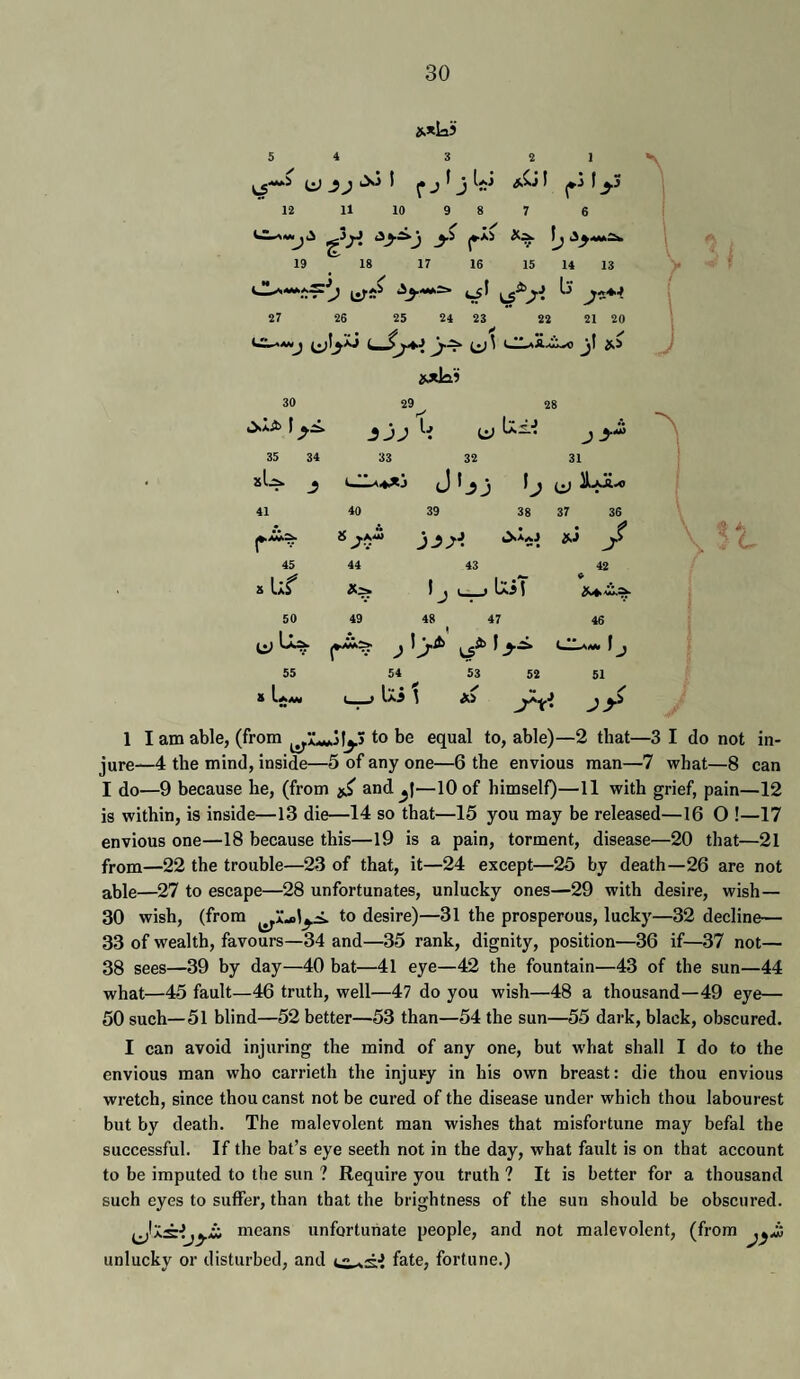 30
قطعه
5 4 3 2 1
توانم آنکه نیازارم اندرون کسی
12 11 10 9 8 7 6
حسود را چه کنم کو زخود برنج درست
19 18 17 16 15 14 13
بمیر تا برهی ای حسود کین رنجیست
27 26 25 24 23 22 21 20
که از مشقت آن جز بمرک نتوان رست
قطعه
30 29 28
شور بختان با رزو خواهند
35 34 33 32 31
مقبلان را زوال نعمت و جاه
41 40 39 38 37 36
گر نه بیند بروز شپره چشم
45 44 43 42
چشمه آفتاب را چه گناه
50 49 48 47 46
راست خواهی هزار چشم چنان
55 54 53 52 51
کور بهتر که آفتاب سیاه
1 I am able, (from توانستن to be equal to, able)—2 that—3 I do not in-
jure—4 the mind, inside—5 of any one—6 the envious man—7 what—8 can
I do—9 because he, (from که and او—10 of himself)—11 with grief, pain—12
is within, is inside—13 die—14 so that—15 you may be released—16 O !—17
envious one—18 because this—19 is a pain, torment, disease—20 that—21
from—22 the trouble—23 of that, it—24 except—25 by death—26 are not
able—27 to escape—28 unfortunates, unlucky ones—29 with desire, wish—
30 wish, (from خواستن to desire)—31 the prosperous, lucky—32 decline—
33 of wealth, favours—34 and—35 rank, dignity, position—36 if—37 not—
38 sees—39 by day—40 bat—41 eye—42 the fountain—43 of the sun—44
what—45 fault—46 truth, well—47 do you wish—48 a thousand—49 eye—
50 such—51 blind—52 better—53 than—54 the sun—55 dark, black, obscured.
I can avoid injuring the mind of any one, but what shall I do to the
envious man who carrieth the injury in his own breast: die thou envious
wretch, since thou canst not be cured of the disease under which thou labourest
but by death. The malevolent man wishes that misfortune may befal the
successful. If the bat's eye seeth not in the day, what fault is on that account
to be imputed to the sun ? Require you truth ? It is better for a thousand
such eyes to suffer, than that the brightness of the sun should be obscured.
شوربختان means unfortunate people, and not malevolent, (from شور
unlucky or disturbed, and بخت fate, fortune.)